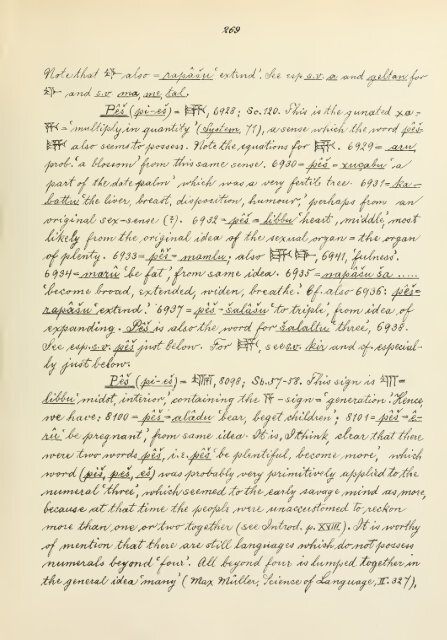 269
Note that 𒈦 also = rapâšu 'extend'. See esp. s.v. a and geltan for
and s.v. ma, me, tal.
Pêš (pi-eš) = , 6928; Sc. 120. This is the gunated xa-
= 'multiply, in quantity' (System, 71), a sense which the word pêš-
also seems to possess. Note the equations for . 6929 = aru,
prob. 'a blossom' from this same sense. 6930 = pêš = xuçabu 'a
part of the date palm' which was a very fertile tree. 6931 = ka-
battu 'the liver, breast, disposition, humour,' perhaps from an
original sex-sense (?). 6932 = pêš = libbu 'heart, middle,' most
likely from the original idea of the sexual organ = the organ
of plenty. 6933 = pêš = mamlu; also , 6941, 'fulness'.
6934 = marû 'be fat', from same idea. 6935 = napâšu ša .....
'become broad, extended, widen, breathe.' Cf. also 6936: pêš =
rapâšu 'extend.' 6937 = pêš = šalâšu 'to triple', from idea of
expanding. Pêš is also the word for šalaltu 'three', 6938.
See esp. s.v. pêš just below. For , see s.v. kir and cf. especial-
ly just below.
Pêš (pi-eš) = , 8098; Sb. 57-58. This sign is =
libbu, 'midst, interior,' containing the - sign = 'generation'. Hence
we have: 8100 = pêš = alâdu 'bear, beget children'; 8101 = pêš = ê-
rû 'be pregnant,' from same idea. It is, I think, clear that there
were two words pêš, i.e. pêš 'be plentiful, become more,' which
word (piš, peš, eš) was probably very primitively applied to the
numeral 'three', which seemed to the early savage mind as, more,
because at that time the people were unaccustomed to reckon
more than one, or two together (see Introd. p. XVIII). It is worthy
of mention that there are still languages which do not possess
numerals beyond 'four'. All beyond four is lumped together in
the general idea 'many' (Max Müller, Science of Language, II. 327),